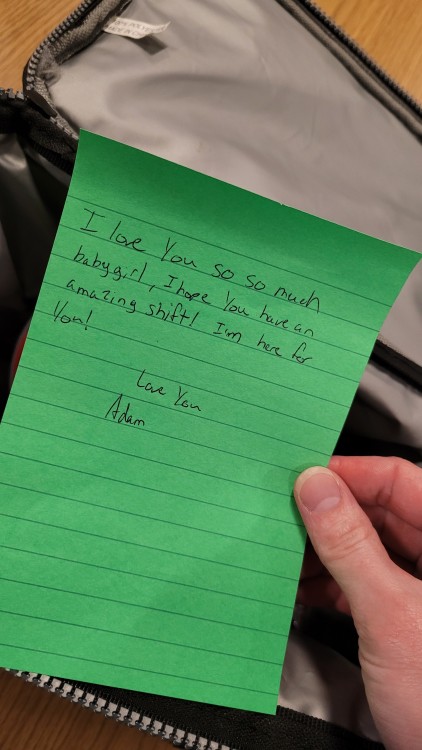 I love You so so much
babygirl, I hope You have an
amazing shift! I'm here for
You!
Love You
Adam